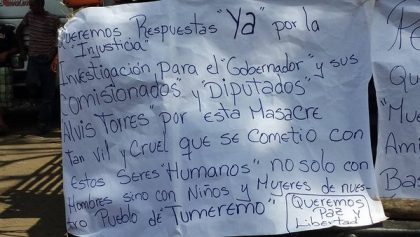 Queremos Respuestas "Ya" por la
"Injusticia"
Investigación Para el "Gobernador" y sus
"Comisionados" y "Diputados"
Alvis Torres" por esta Masacre
Tan vil y Cruel que se Cometio con
Estos Seres "Humanos" no solo con
Hombres sino con Niños y Mujeres de nues-
tro Pueblo de "Tumeremo"
Queremos
Paz y
Libertad